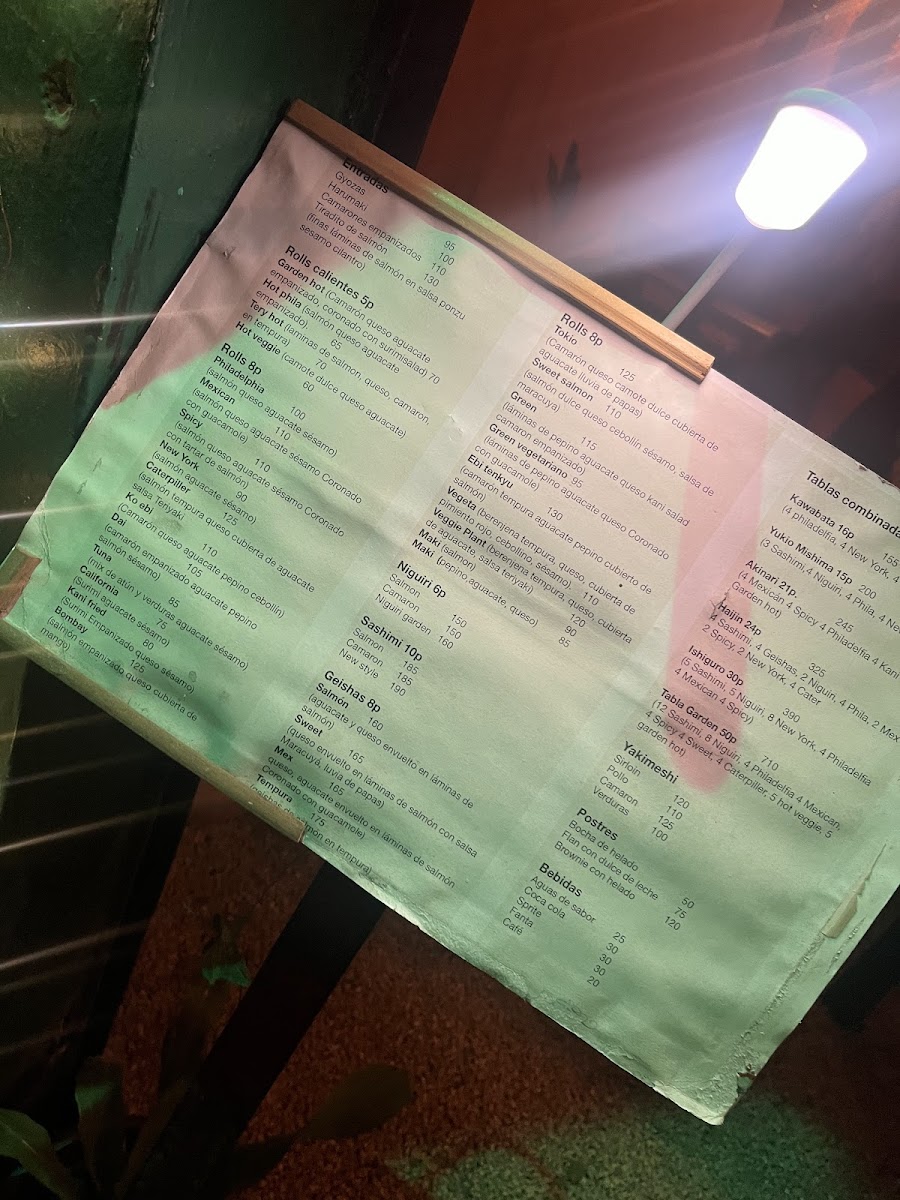 Entradas
Gyozas 95
Harumaki 100
Camarones empanizados 110
Tiradito de salmón 130
(finas láminas de salmón en salsa ponzu
sesamo cilantro)
Rolls calientes 5p
Garden hot (Camarón queso aguacate
empanizado, coronado con surimisalad) 70
Hot phila (salmón queso aguacate
empanizado). 65
Tery hot (laminas de salmon, queso, camaron,
en tempura) 70
Hot veggie (camote dulce queso aguacate)
60
Rolls 8p
Philadelphia 100
(salmón queso aguacate sésamo)
Mexican 110
(salmón queso aguacate sésamo Coronado
con guacamole)
Spicy 110
(salmón queso aguacate sésamo Coronado
con tartar de salmón)
New York 90
(salmón aguacate sésamo)
Caterpiller 125
(salmón tempura queso cubierta de aguacate
salsa Teriyaki
Ko ebi 110
(Camarón queso aguacate pepino cebollín)
Dai 105
(camarón empanizado aguacate pepino
salmón sésamo)
Tuna 85
(mix de atún y verduras aguacate sésamo)
California 75
(Surimi aguacate sésamo)
Kani fried 60
(Surimi Empanizado queso sésamo)
Bombay 125
(salmón empanizado queso cubierta de
mango)
Rolls 8p
Tokio 125
(Camarón queso camote dulce cubierta de
aguacate lluvia de papas)
Sweet salmon 110
(salmón dulce queso cebollín sésamo, salsa de
maracuya)
Green 115
(láminas de pepino aguacate queso kani salad
camaron empanizado)
Green vegetariano 95
(láminas de pepino aguacate queso Coronado
con guacamole)
Ebi tenkyu 130
(camarón tempura aguacate pepino cubierto de
salmón)
Vegeta (berenjena tempura, queso, cubierta de
pimiento rojo, cebollino, sésamo) 110
Veggie Plant (berenjena tempura, queso, cubierta
de aguacate, salsa teriyaki) 120
Maki (salmon) 90
Maki (pepino aguacate, queso) 85
Niguiri 6p
Salmon 150
Camaron 150
Niguiri garden 160
Sashimi 10p
Salmon 185
Camaron 185
New style 190
Geishas 8p
Salmón 160
(aguacate y queso envuelto en láminas de
salmón)
Sweet 165
(queso envuelto en láminas de salmón con salsa
Maracuyá, luvia de papas)
Mex 165
queso, aguacate envuelto en láminas de salmón
Coronado con guacamole)
Tempura 175
món en tempura)
Tablas combinada
Kawabata 16p 155
(4 philadelfia, 4 New York, 4
Yukio Mishima 15p 200
(3 Sashimi, 4 Niguiri, 4 Phila, 4 Ne
Akinari 21p. 245
(4 Mexican 4 Spicy 4 Philadelfia 4 Kani
Garden hot)
Haijin 24p 325
4 Sashimi, 4 Geishas, 2 Niguiri, 4 Phila, 2 Mex
2 Spicy, 2 New York, 4 Cater
Ishiguro 30p 390
(5 Sashimi, 5 Niguiri, 8 New York, 4 Philadelfia
4 Mexican 4 Spicy)
Tabla Garden 50p 710
(12 Sashimi, 8 Niguiri, 4 Philadelfia 4 Mexican,
4 Spicy 4 Sweet, 4 Caterpiller, 5 hot veggie, 5
garden hot)
Yakimeshi
Sirloin 120
Pollo 110
Camaron 125
Verduras 100
Postres
Bocha de helado 50
Flan con dulce de leche 75
Brownie con helado 120
Bebidas
Aguas de sabor 25
Coca cola 30
Sprite 30
Fanta 30
Café 20